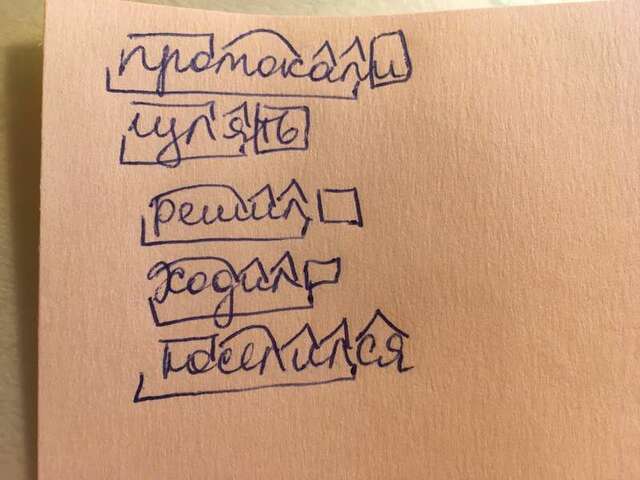 промокали
гулять
решил
ходил
поселился